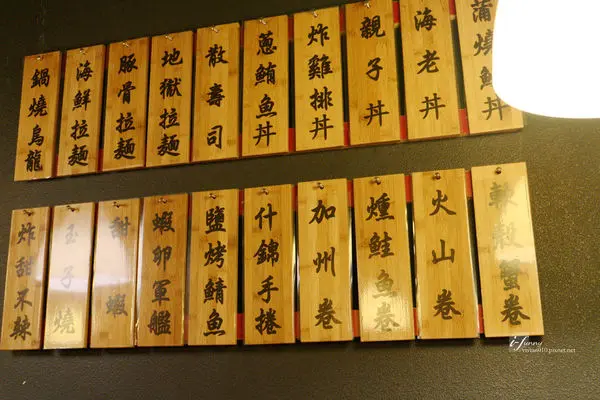 鍋燒烏龍
海鮮拉麵
豚骨拉麵
地獄拉麵
散壽司
蔥鮪魚丼
炸雞排丼
親子丼
海老丼
蒲燒魚丼
炸甜不辣
玉子燒
甜蝦
蝦卵軍艦
鹽烤鯖魚
什錦手捲
加州卷
燻鮭魚卷
火山卷
軟殼蟹卷
i-Funny